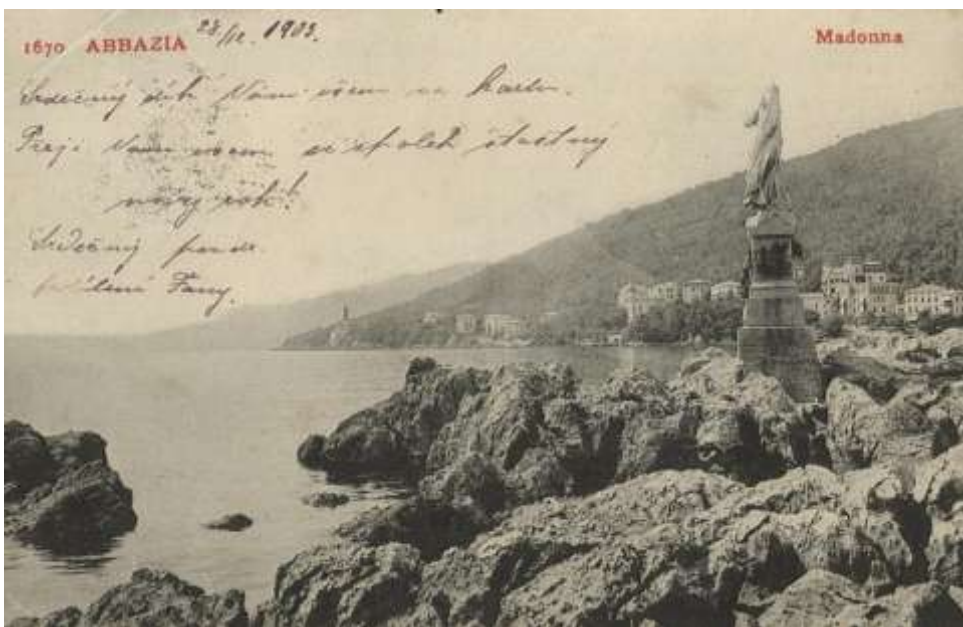 1670 ABBAZIA
28/12. 1903.
Madonna
Srdečný dík Vám všem za
Přeji Vám všem šťastný
nový rok!
Srdečný
Fany.